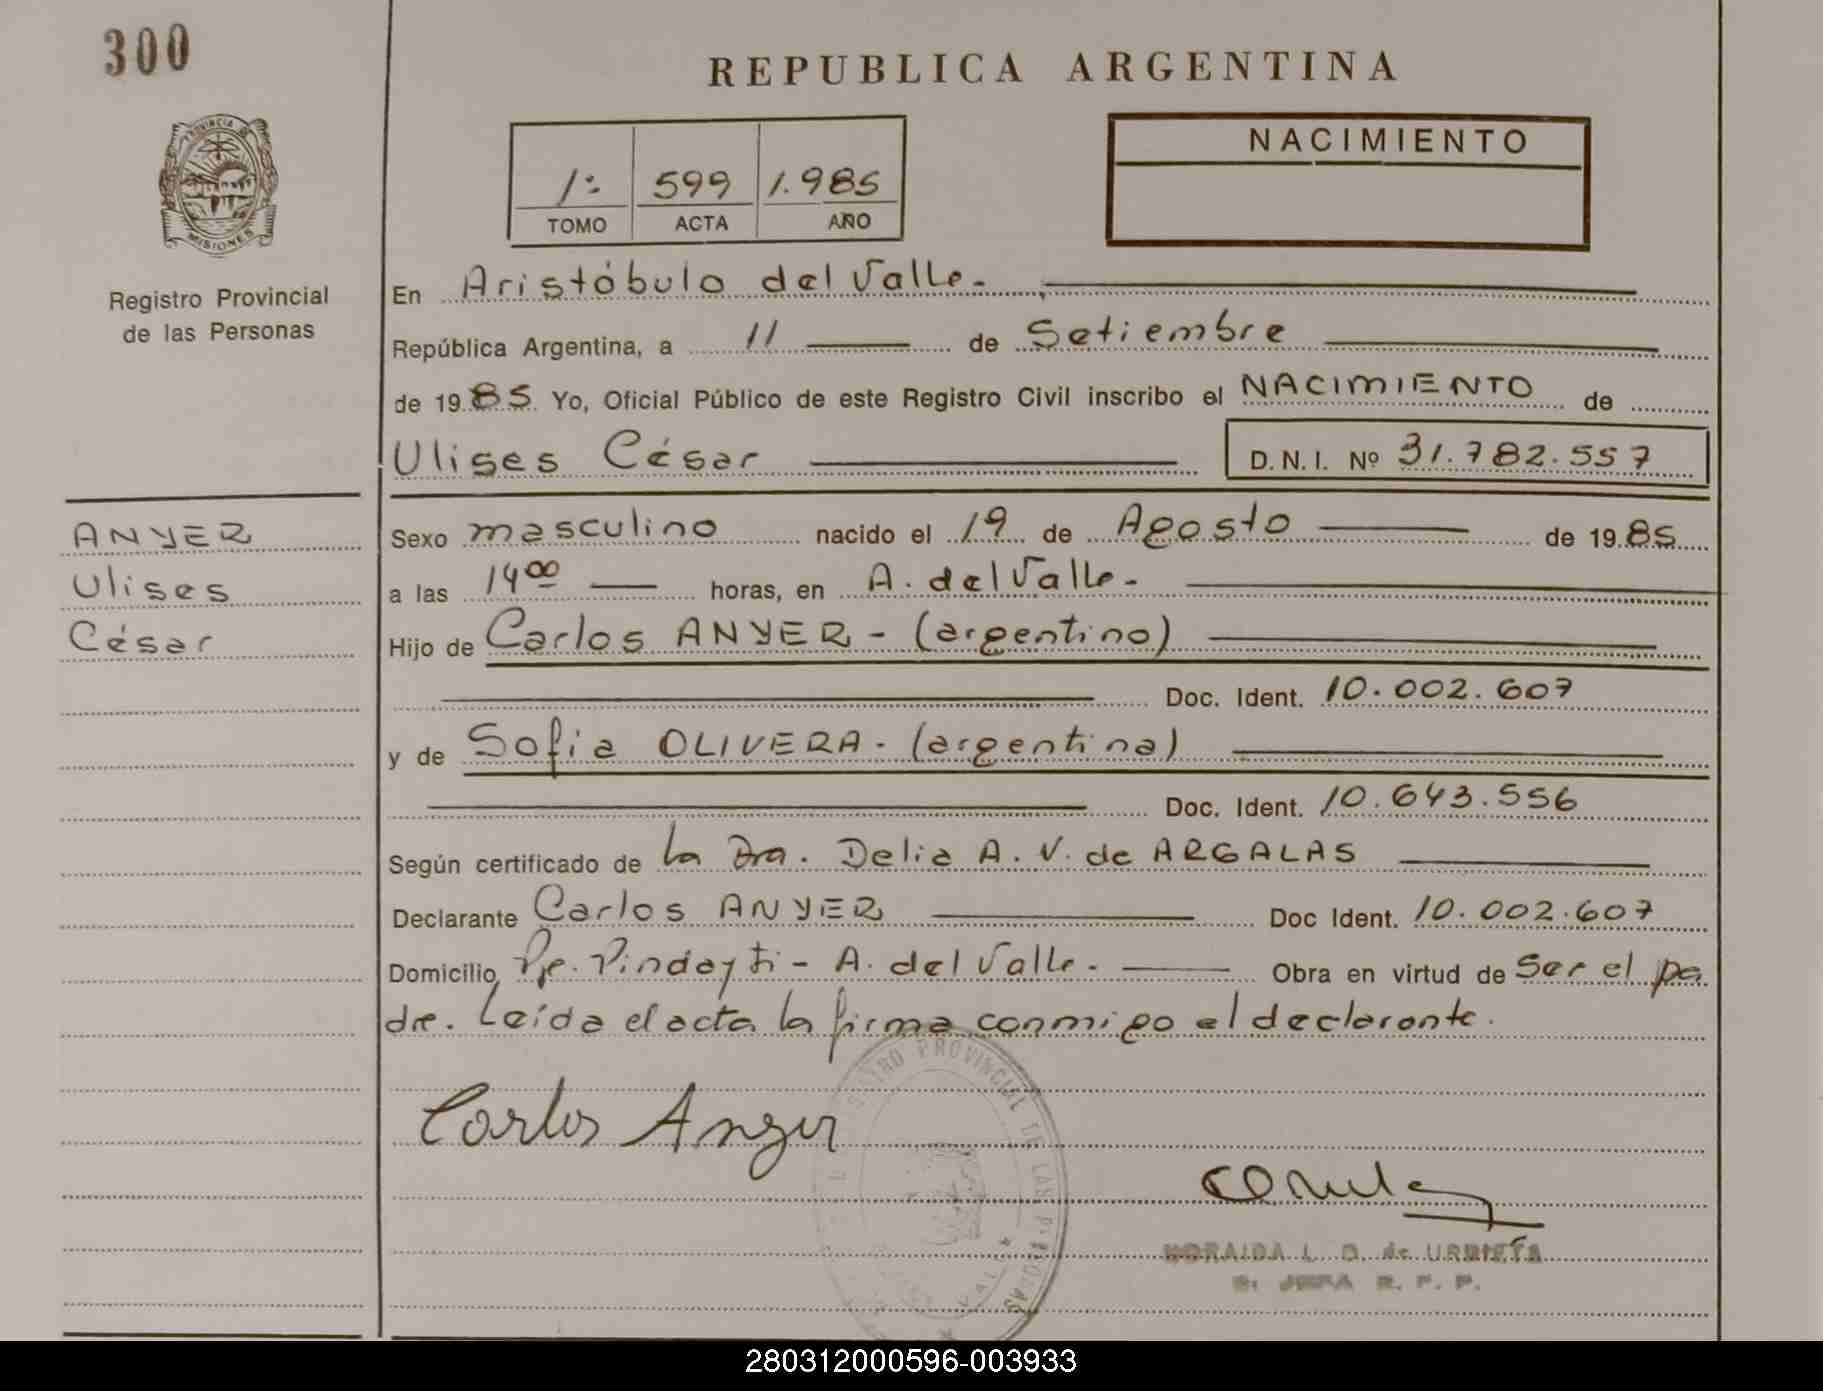 300
REPUBLICA ARGENTINA
PROVINCIA DE
MISIONES
Registro Provincial
de las Personas
1º 599 1.985
TOMO ACTA AÑO
NACIMIENTO
En Aristóbulo del Valle.-
República Argentina, a 11 de Setiembre
de 1985 Yo, Oficial Público de este Registro Civil inscribo el NACIMIENTO de
Ulises César D.N.I. Nº 31.782.557
ANYER
Ulises
César
Sexo masculino nacido el 19 de Agosto de 1985
a las 14 00 horas, en A. del Valle.-
Hijo de Carlos ANYER - (argentino)
Doc. Ident. 10.002.607
y de Sofia OLIVERA - (argentina)
Doc. Ident. 10.643.556
Según certificado de la Dra. Delia A. V. de ARGALAS
Declarante Carlos ANYER Doc Ident. 10.002.607
Domicilio Pje. Pindayti - A. del Valle.- Obra en virtud de ser el pa
dre. Leída el acta la firma conmigo el declarante.
Carlos Anyer
REGISTRO PROVINCIAL DE LAS PERSONAS
L. D. de URBIETA
JEFA R. P. P.
280312000596-003933